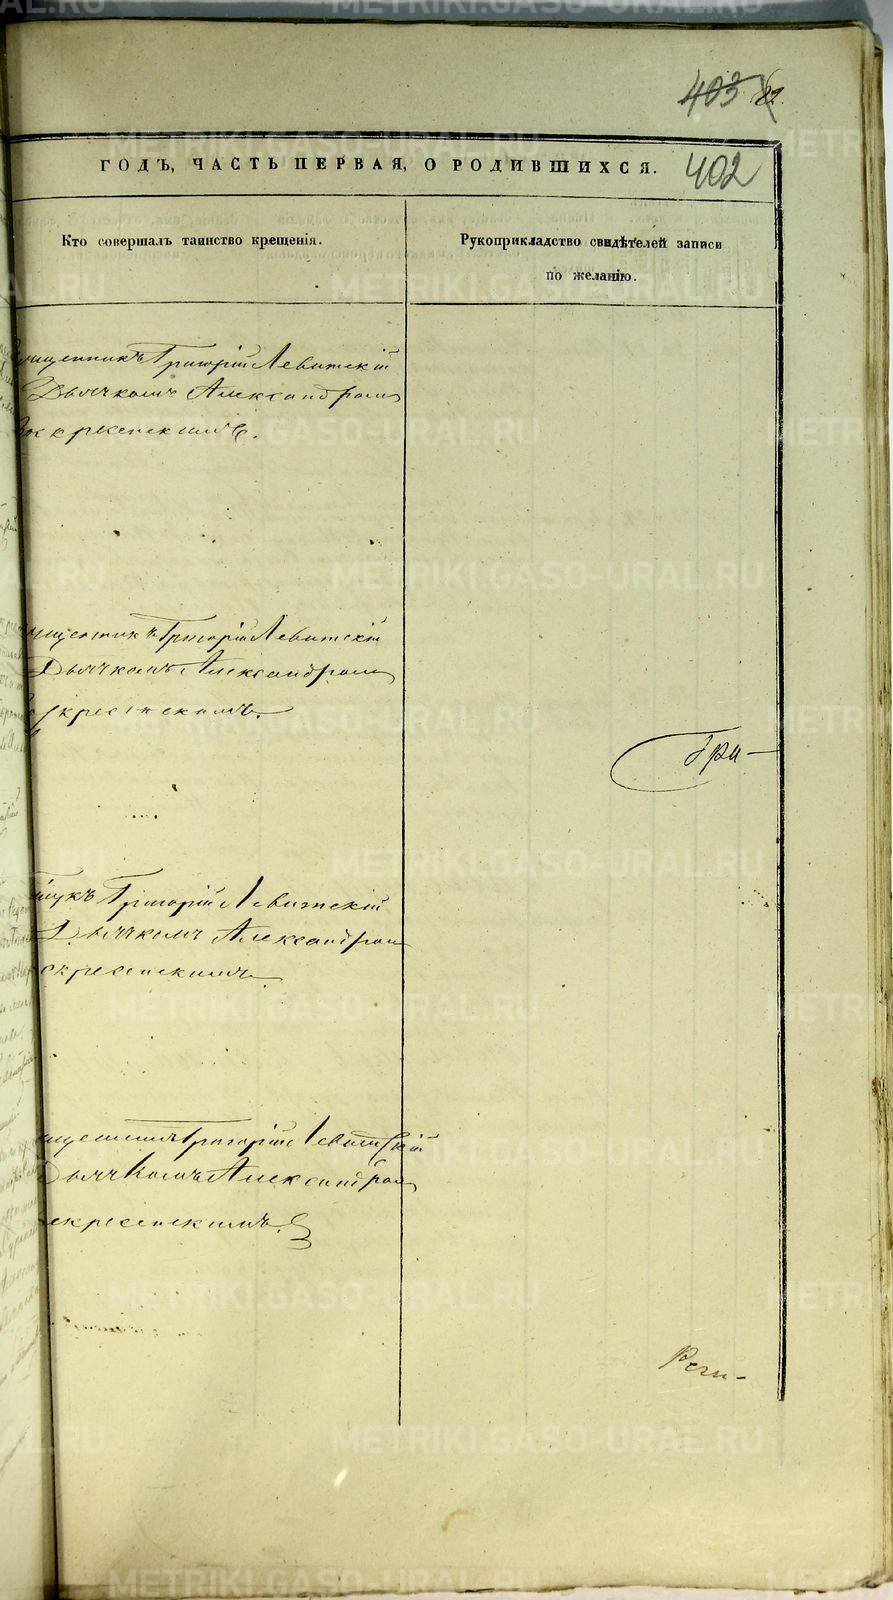 403
402
ГОДЪ, ЧАСТЬ ПЕРВАЯ, О РОДИВШИХСЯ.
Кто совершалъ таинство крещенія.
Рукоприкладство свидѣтелей записи
по желанію.
щенникъ Григорій Левитскій
Дьячкомъ Александромъ
Воскресенскимъ.
щенникъ Григорій Левитскій
Дьячкомъ Александромъ
скресенскимъ.
Гри-
никъ Григорій Левитскій
Дьячкомъ Александром
скресенскимъ
щенникъ Григорій Левитскій
Дьячкомъ Александром
скресенскимъ.
METRIKI.GASO-URAL.RU